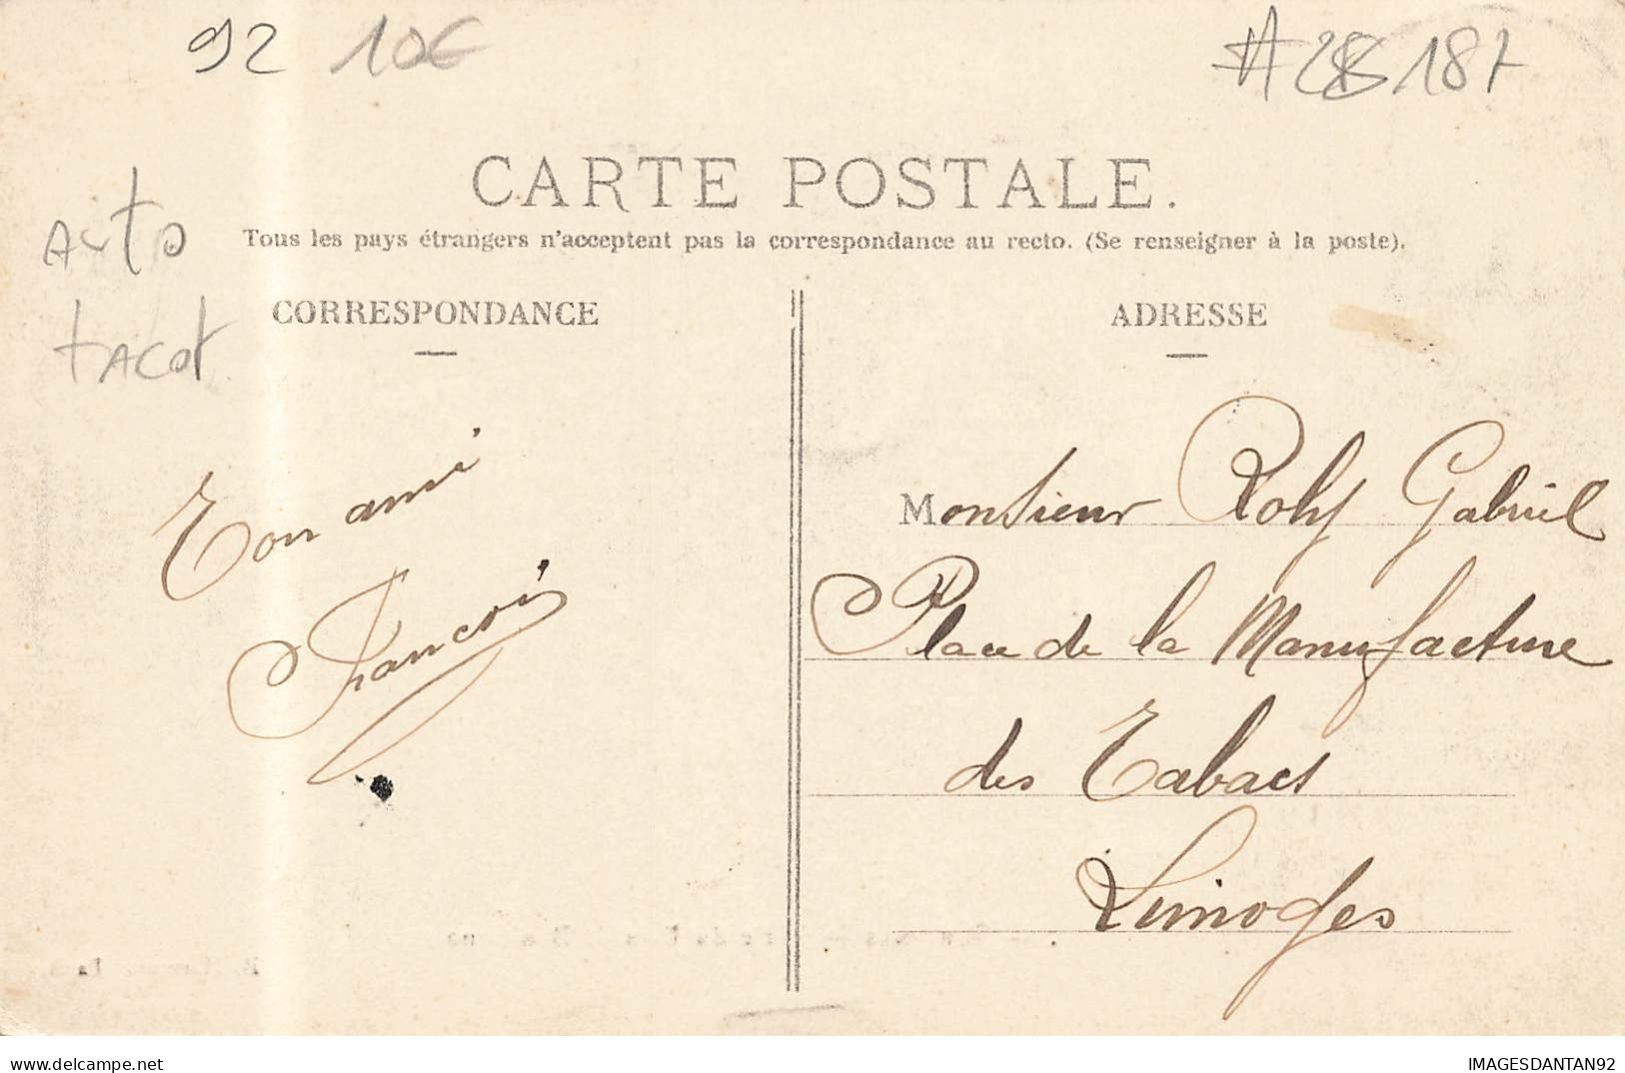 92 10€
#28187
CARTE POSTALE.
Tous les pays étrangers n'acceptent pas la correspondance au recto. (Se renseigner à la poste).
Auto
tacot
CORRESPONDANCE
ADRESSE
Ton ami
François
Monsieur Roby Gabriel
Place de la Manufacture
des Tabacs
Limoges
www.delcampe.net
IMAGESDANTAN92